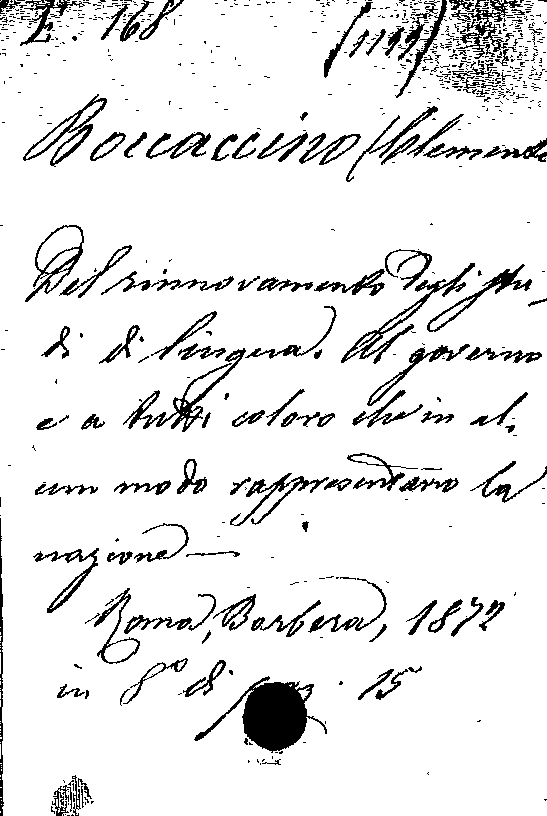 E. 168 (1199)
Boccaccino (Clemente
Del rinnovamento degli stu-
di di lingua. Al governo
e a tutti coloro che in al-
cun modo rappresentano la
nazione —
Roma, Barbera, 1872
in 8º di pag. 15